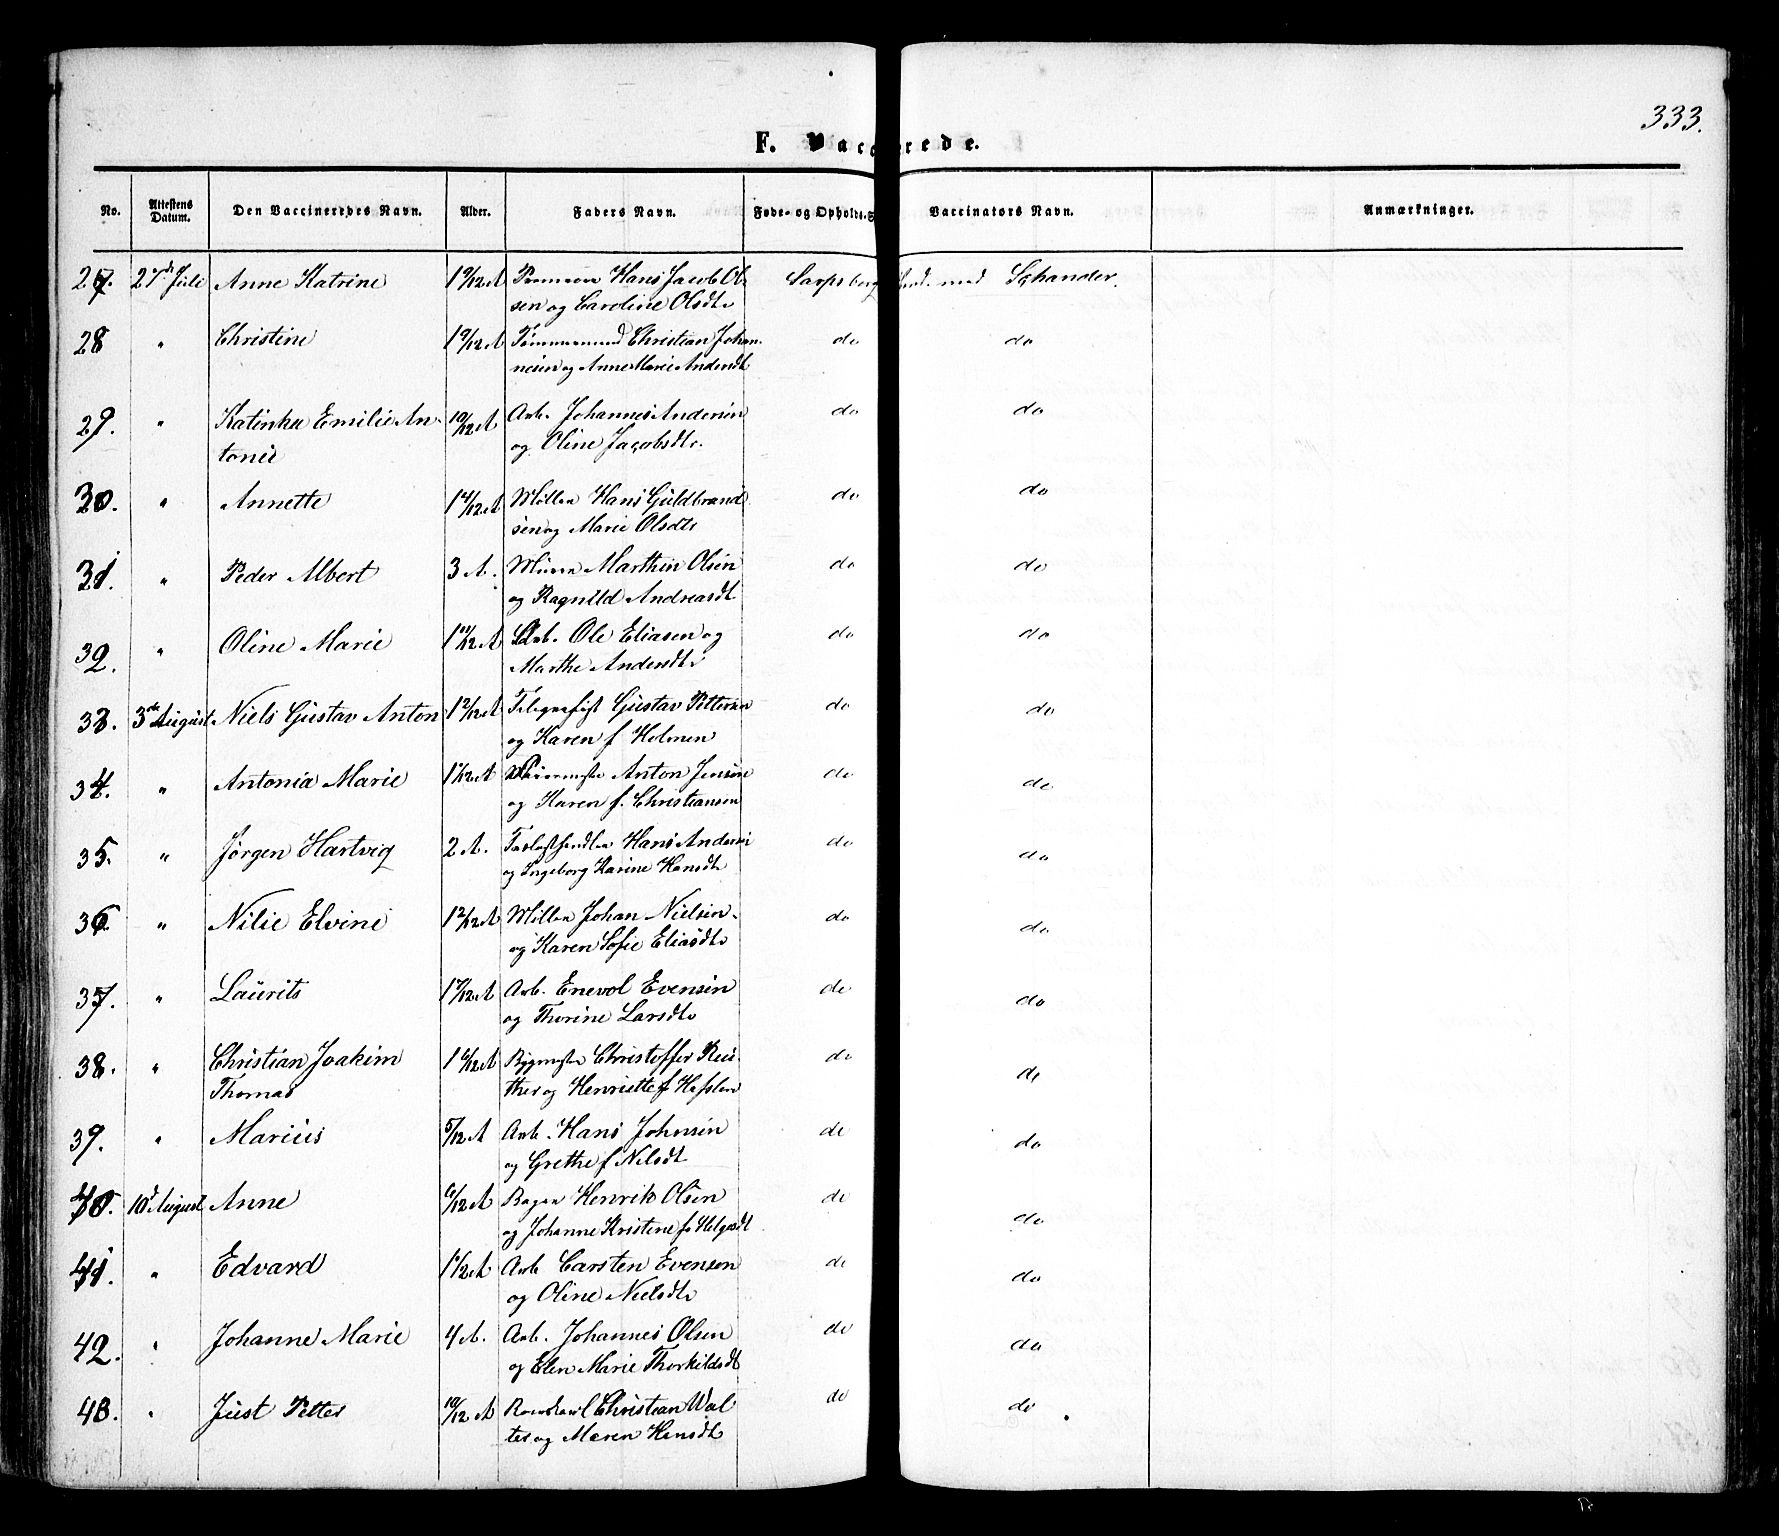 333.
F. Vacc rede.
No. Attestens Datum. Den Vaccineredes Navn. Alder. Faders Navn. Føde- og Opholds-S Vaccinators Navn. Anmærkninger.
27. 27d Juli Anne Katrine 1 9/12 A Hans Jacob Ol- Sarpsborg med Schander.
sen og Caroline Olsdtr
28 " Christine 1 9/12 A Tømmermand Christian Johan- do do
nesen og Anne Marie Andersdt
29. " Katinka Emilie An- 10/12 A Arb. Johannes Andersen do do
tonie og Oline Jacobsdtr.
30. " Annette 1 4/12 A Møller Hans Guldbrand do do
sen og Marie Olsdtr
31. " Peder Albert 3 A. Murer Marthin Olsen do do
og Ragnild Andreasdt
32. " Oline Marie 1 11/12 A Arb. Ole Eliasen og do do
Marthe Andersdtr
33. 3de August Niels Gustav Anton 1 2/12 A Telegrafist Gustav Pettersen do do
og Karen f Holmen
34. " Antonia Marie 1 1/12 A Anton Jensen do do
og Karen f. Christiansen
35. " Jørgen Hartvig 2 A. Hans Andersen do do
og Ingeborg Karine Hansdtr
36. " Nilie Elvine 1 2/12 A Møller Johan Nielsen do do
og Karen Sofie Eliasdtr
37. " Laurits 1 7/12 A Arb. Enevol Evensen do do
og Thorine Larsdtr
38. " Christian Joakim 1 6/12 A Bygmester Christoffer Reu- do do
Thomas ther og Henriette f Hesslen
39. " Marius 5/12 A Arb. Hans Johnsen do do
og Grethe f Nilsdt
40. 10d August Anne 6/12 A Bager Henrik Olsen do do
og Johanne Kristine f. Helgesdt
41. " Edvard 1 1/12 A Arb Carsten Evensen do do
og Oline Nielsdtr
42. " Johanne Marie 4 A. Arb. Johannes Olsen do do
og Elen Marie Thorkildsdt
43. " Just Petter 10/12 A Christian Wal do do
ter og Maren Hansdt